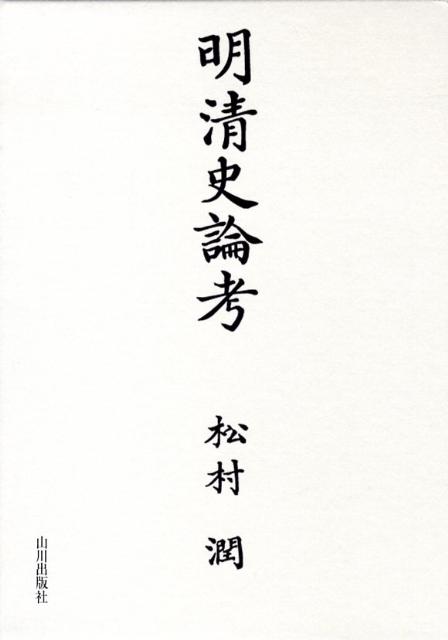 明清史論考
松村 潤
山川出版社